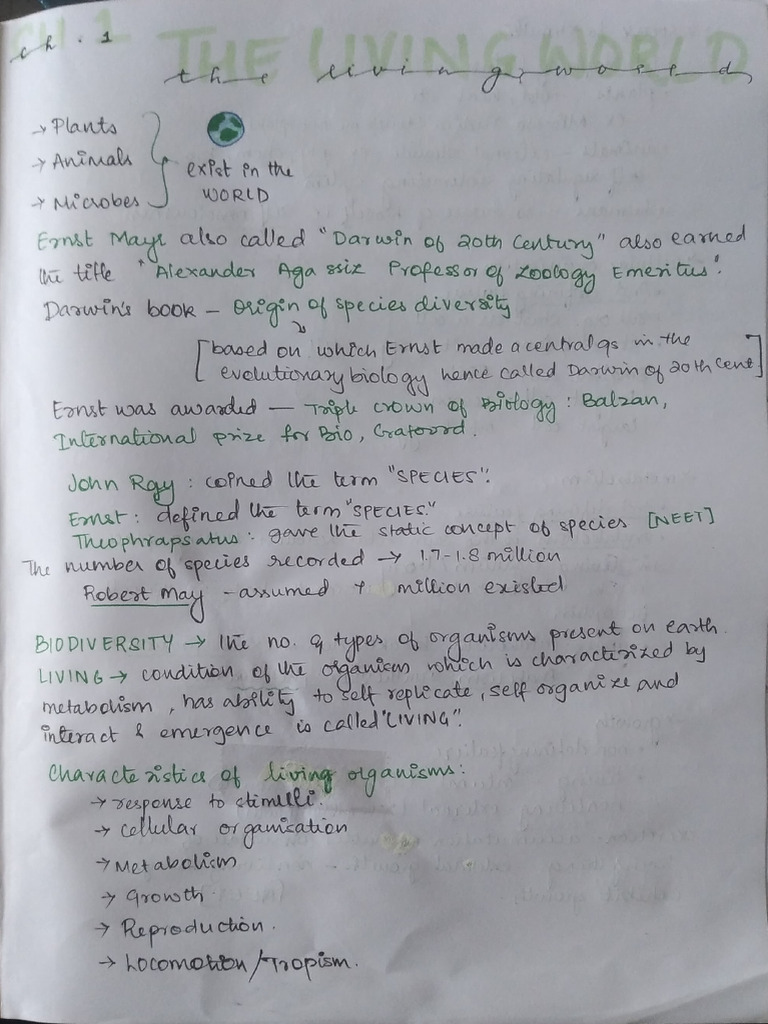 CH. 1 THE LIVING WORLD
ch. 1
the living world
→ Plants
→ Animals
→ Microbes
exist in the
WORLD
Ernst Mayr also called "Darwin of 20th Century" also earned
the title "Alexander Aga ssiz Professor of Zoology Emeritus".
Darwin's book – Origin of species diversity
[based on which Ernst made a central qs in the
evolutionary biology hence called Darwin of 20th Cent]
Ernst was awarded — Triple crown of Biology : Balzan,
International prize for Bio, Crafoord.
John Ray : coined the term "SPECIES".
Ernst : defined the term "SPECIES."
Theophrapsatus : gave the static concept of species [NEET]
The number of species recorded → 1.7-1.8 million
Robert May - assumed 7 million existed
BIODIVERSITY → the no. & types of organisms present on earth
LIVING → condition of the organism which is characterized by
metabolism, has ability to self replicate, self organize and
interact & emergence is called "LIVING".
Characteristics of living organisms:
→ response to stimuli.
→ cellular organisation
→ Metabolism
→ Growth
→ Reproduction.
→ Locomotion/Tropism.